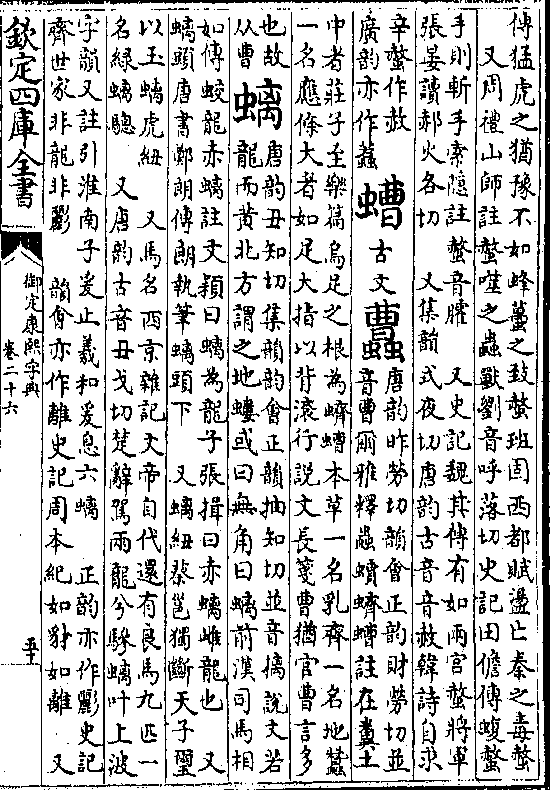 傅猛虎之猶豫不如蜂蠆之致螫班固西都賦盪亡秦之毒螫
又周禮山師註螫噬之蟲獸劉音呼落切史記田儋傳蝮螫
手則斬手索隱註螫音臛　又史記魏其傳有如兩宮螫將軍
張晏讀郝火各切　又集韻式夜切唐韻古音音赦韓詩自求
辛螫作赦
廣韵亦作䖧
螬
古文
𧔈
唐韵昨勞切韻會正韵財勞切並
音曹爾雅釋蟲蟦蠐螬註在糞土
中者莊子至樂篇烏足之根為蠐螬本草一名乳齊一名地蠶
一名應條大者如足大指以背滚行說文長箋曹猶官曹言多
也故
从曹
螭
唐韵丑知切集韻韵會正韻抽知切並音摛說文若
龍而黄北方謂之地螻或曰無角曰螭前漢司馬相
如傳蛟龍赤螭註文穎曰螭為龍子張揖曰赤螭雌龍也　又
螭頭唐書鄭朗傳朗執筆螭頭下　又螭紐蔡邕獨斷天子璽
以玉螭虎紐　又馬名西京雜記文帝自代還有良馬九匹一
名緑螭驄　又唐韵古音丑戈切楚辭駕兩龍兮驂螭叶上波
字韻又註引淮南子爰止羲和爰息六螭　正韵亦作彲史記
齊世家非龍非彲　韻會亦作離史記周本紀如豺如離　又
欽定四庫全書
御定康熙字典
卷二十六